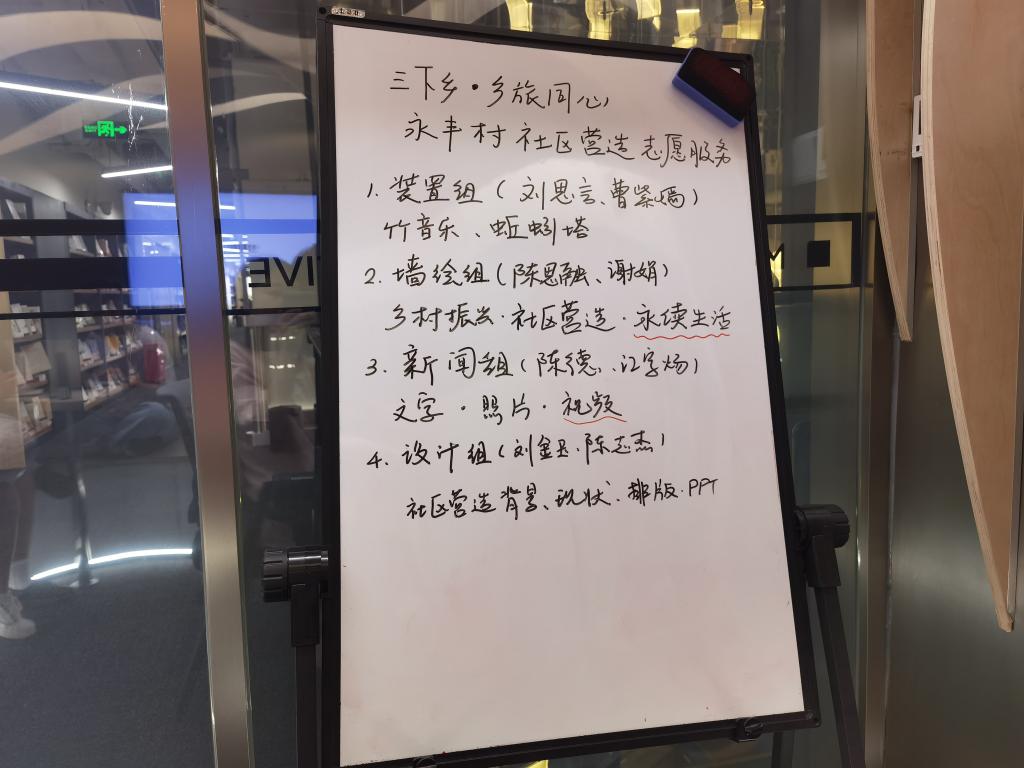 三下乡·乡旅同心
永丰村 社区营造 志愿服务
1. 装置组（刘思言、曹紫嫣）
竹音乐、蚯蚓塔
2. 墙绘组（陈思融、谢娟）
乡村振兴·社区营造·永续生活
3. 新闻组（陈德、江字炀）
文字·照片·视频
4. 设计组（刘金玉·陈志杰）
社区营造背景、现状·排版·PPT